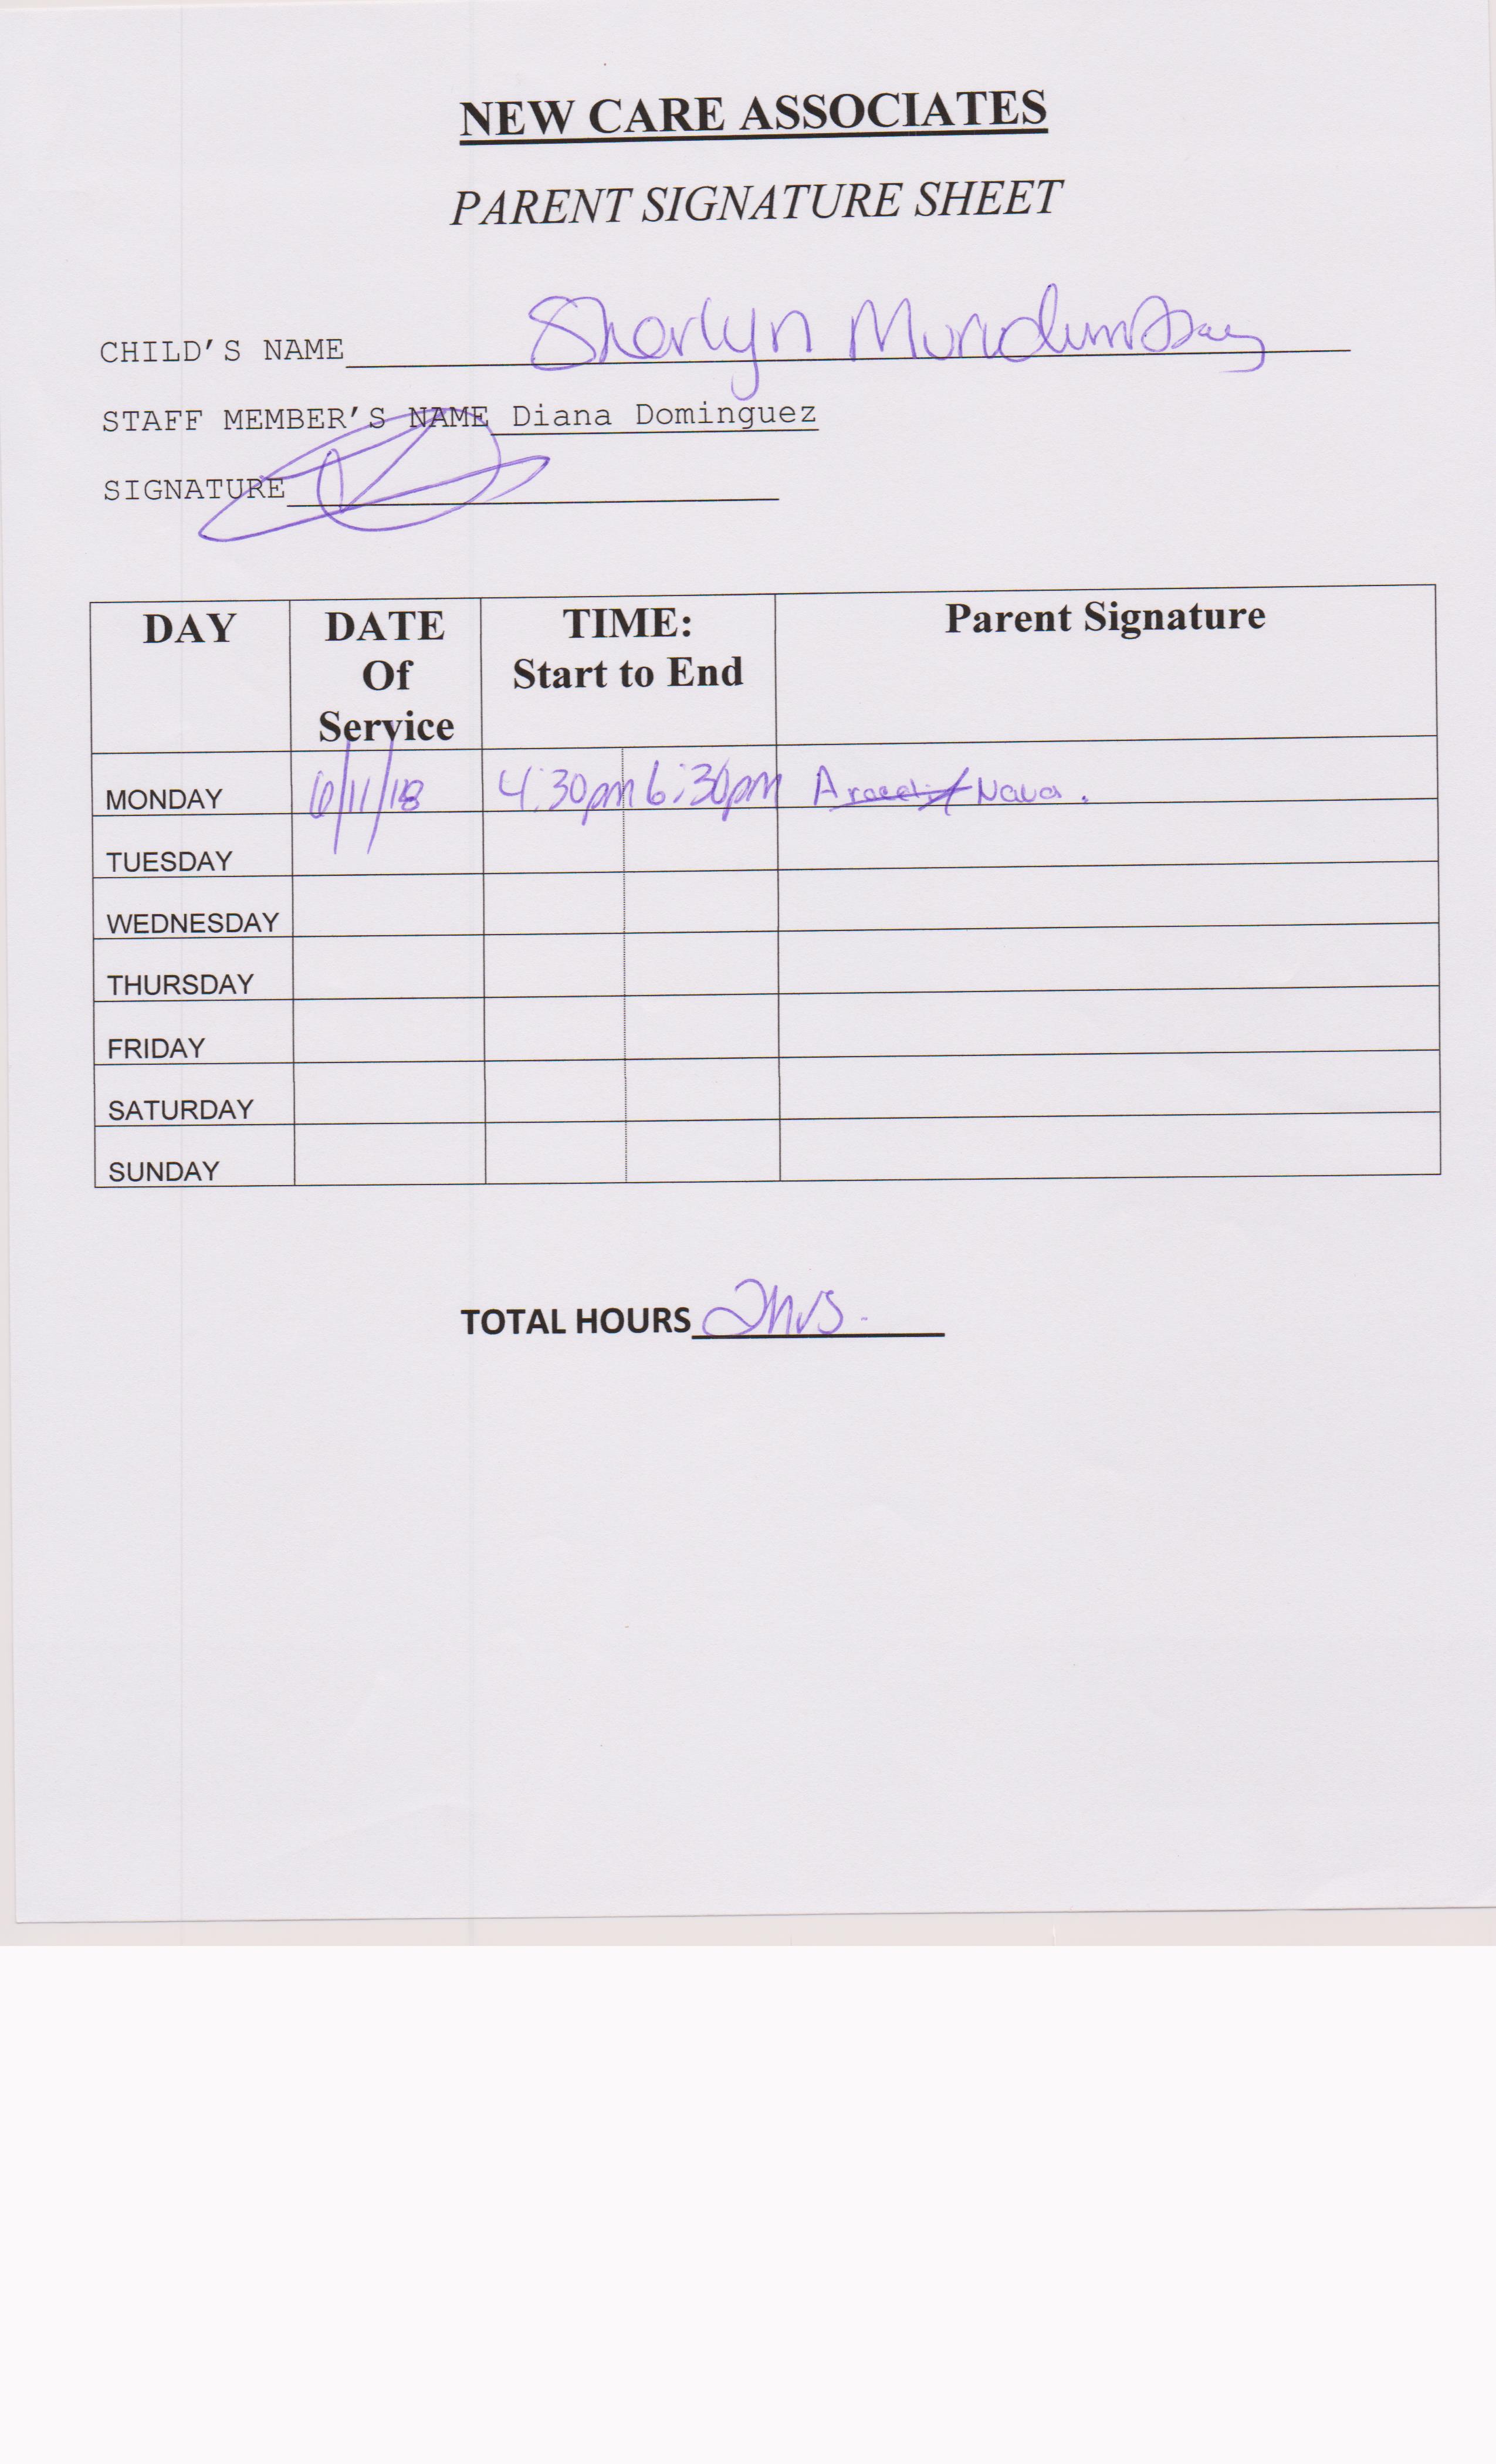 NEW CARE ASSOCIATES
PARENT SIGNATURE SHEET
CHILD'S NAME Sharlyn
STAFF MEMBER'S NAME Diana Dominguez
SIGNATURE
DAY DATE Of Service TIME: Start to End Parent Signature
MONDAY 6/11/18 4:30pm 6:30pm Araceli Nava.
TUESDAY
WEDNESDAY
THURSDAY
FRIDAY
SATURDAY
SUNDAY
TOTAL HOURS 2hrs.